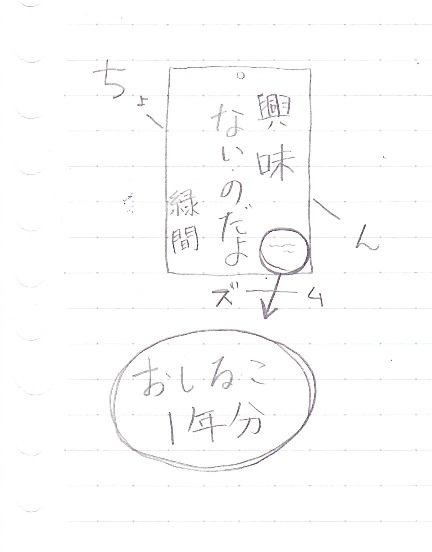 ちょん
興味
ないのだよ
緑間
ズーム
おしるこ
1年分